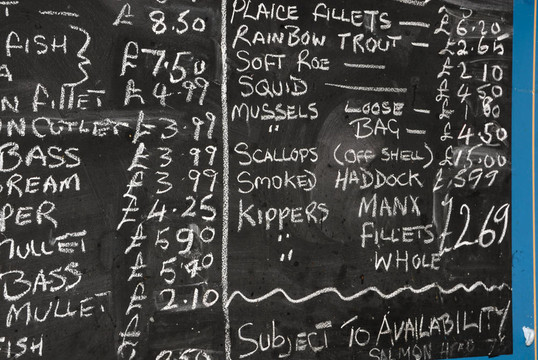 £ 8.50
FISH
£7.50
A
N FILLET £ 4.99
ON CUTLET £3.99
BASS £ 3.99
REAM £ 3.99
PER £ 4.25
MULLET £ 590
BASS £
MULLET £ 2.10
FISH
PLAICE FILLETS — £ 6.20
RAINBOW TROUT — £2.65
SOFT ROE — £ 2.10
SQUID — £ 4.50
MUSSELS LOOSE — £
" BAG — £ 4.50
SCALLOPS (OFF SHELL) £15.00
SMOKED HADDOCK £599
KIPPERS MANX
" FILLETS £269
" WHOLE
SUBJECT TO AVAILABILITY
SALMON HEAD